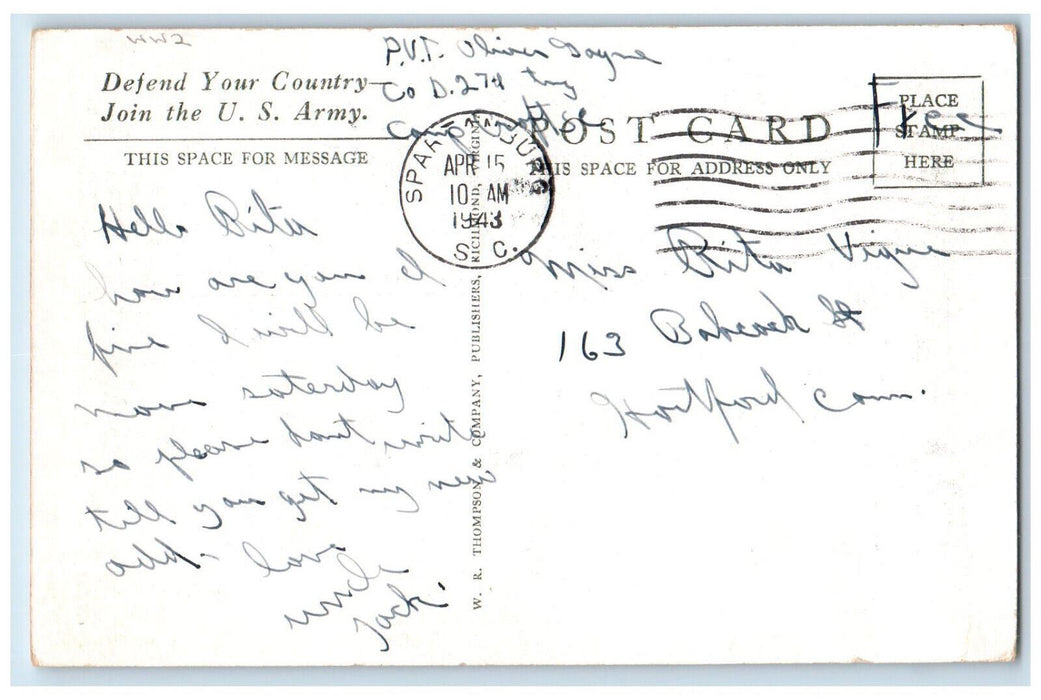 WW2
P.V.T. Oliver
Co D. 27th Trg
Camp Croft S.C.
Defend Your Country—
Join the U. S. Army.
THIS SPACE FOR MESSAGE
POST CARD
THIS SPACE FOR ADDRESS ONLY
PLACE
STAMP
HERE
Free
SPARTANBURG
APR 15
10 AM
1943
S. C.
Hello Rita
how are you I
fine I will be
move saterday
so please dont write
till you get my new
add. love
uncle
Jack.
W. R. THOMPSON & COMPANY, PUBLISHERS, RICHMOND, VIRGINIA
Miss Rita Vigue
163 Babcock St
Hartford Conn.